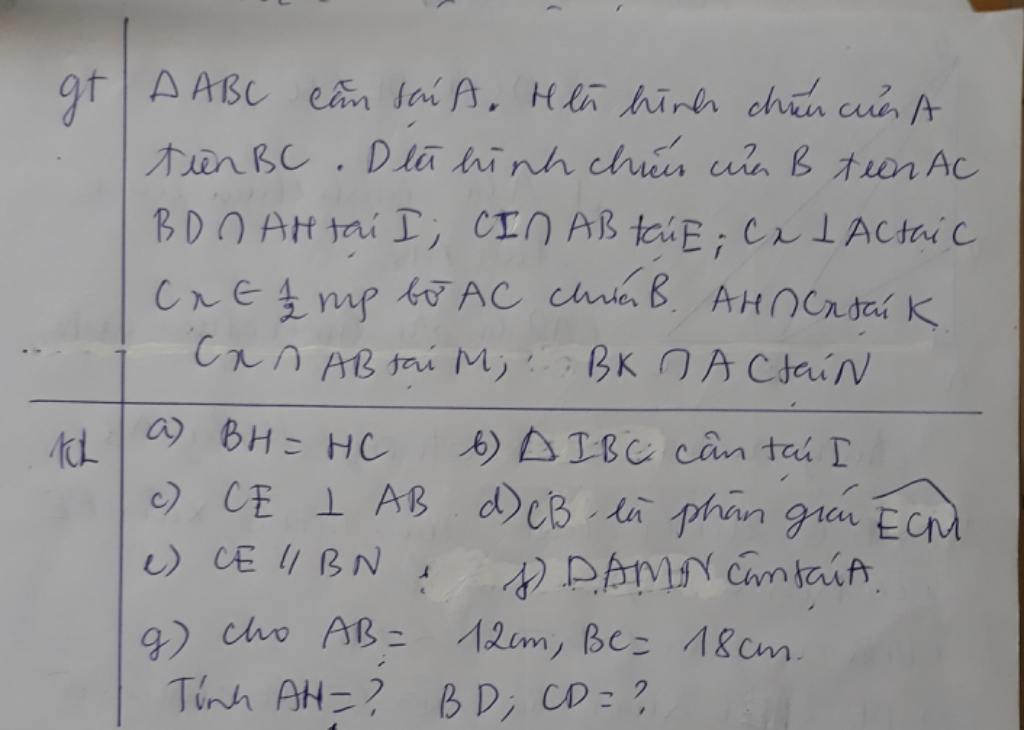 gt ΔABC cân tại A. H là hình chiếu của A
trên BC. D là hình chiếu của B trên AC
BD ∩ AH tại I; CI ∩ AB tại E; Cx ⊥ AC tại C
Cx ∈ 1/2 mp bờ AC chứa B. AH ∩ Cx tại K
Cx ∩ AB tại M; BK ∩ AC tại N
kl a) BH = HC b) ΔIBC cân tại I
c) CE ⊥ AB d) CB là phân giác ECM
e) CE // BN f) ΔAMN cân tại A.
g) cho AB = 12cm, BC = 18cm.
Tính AH = ? BD; CD = ?